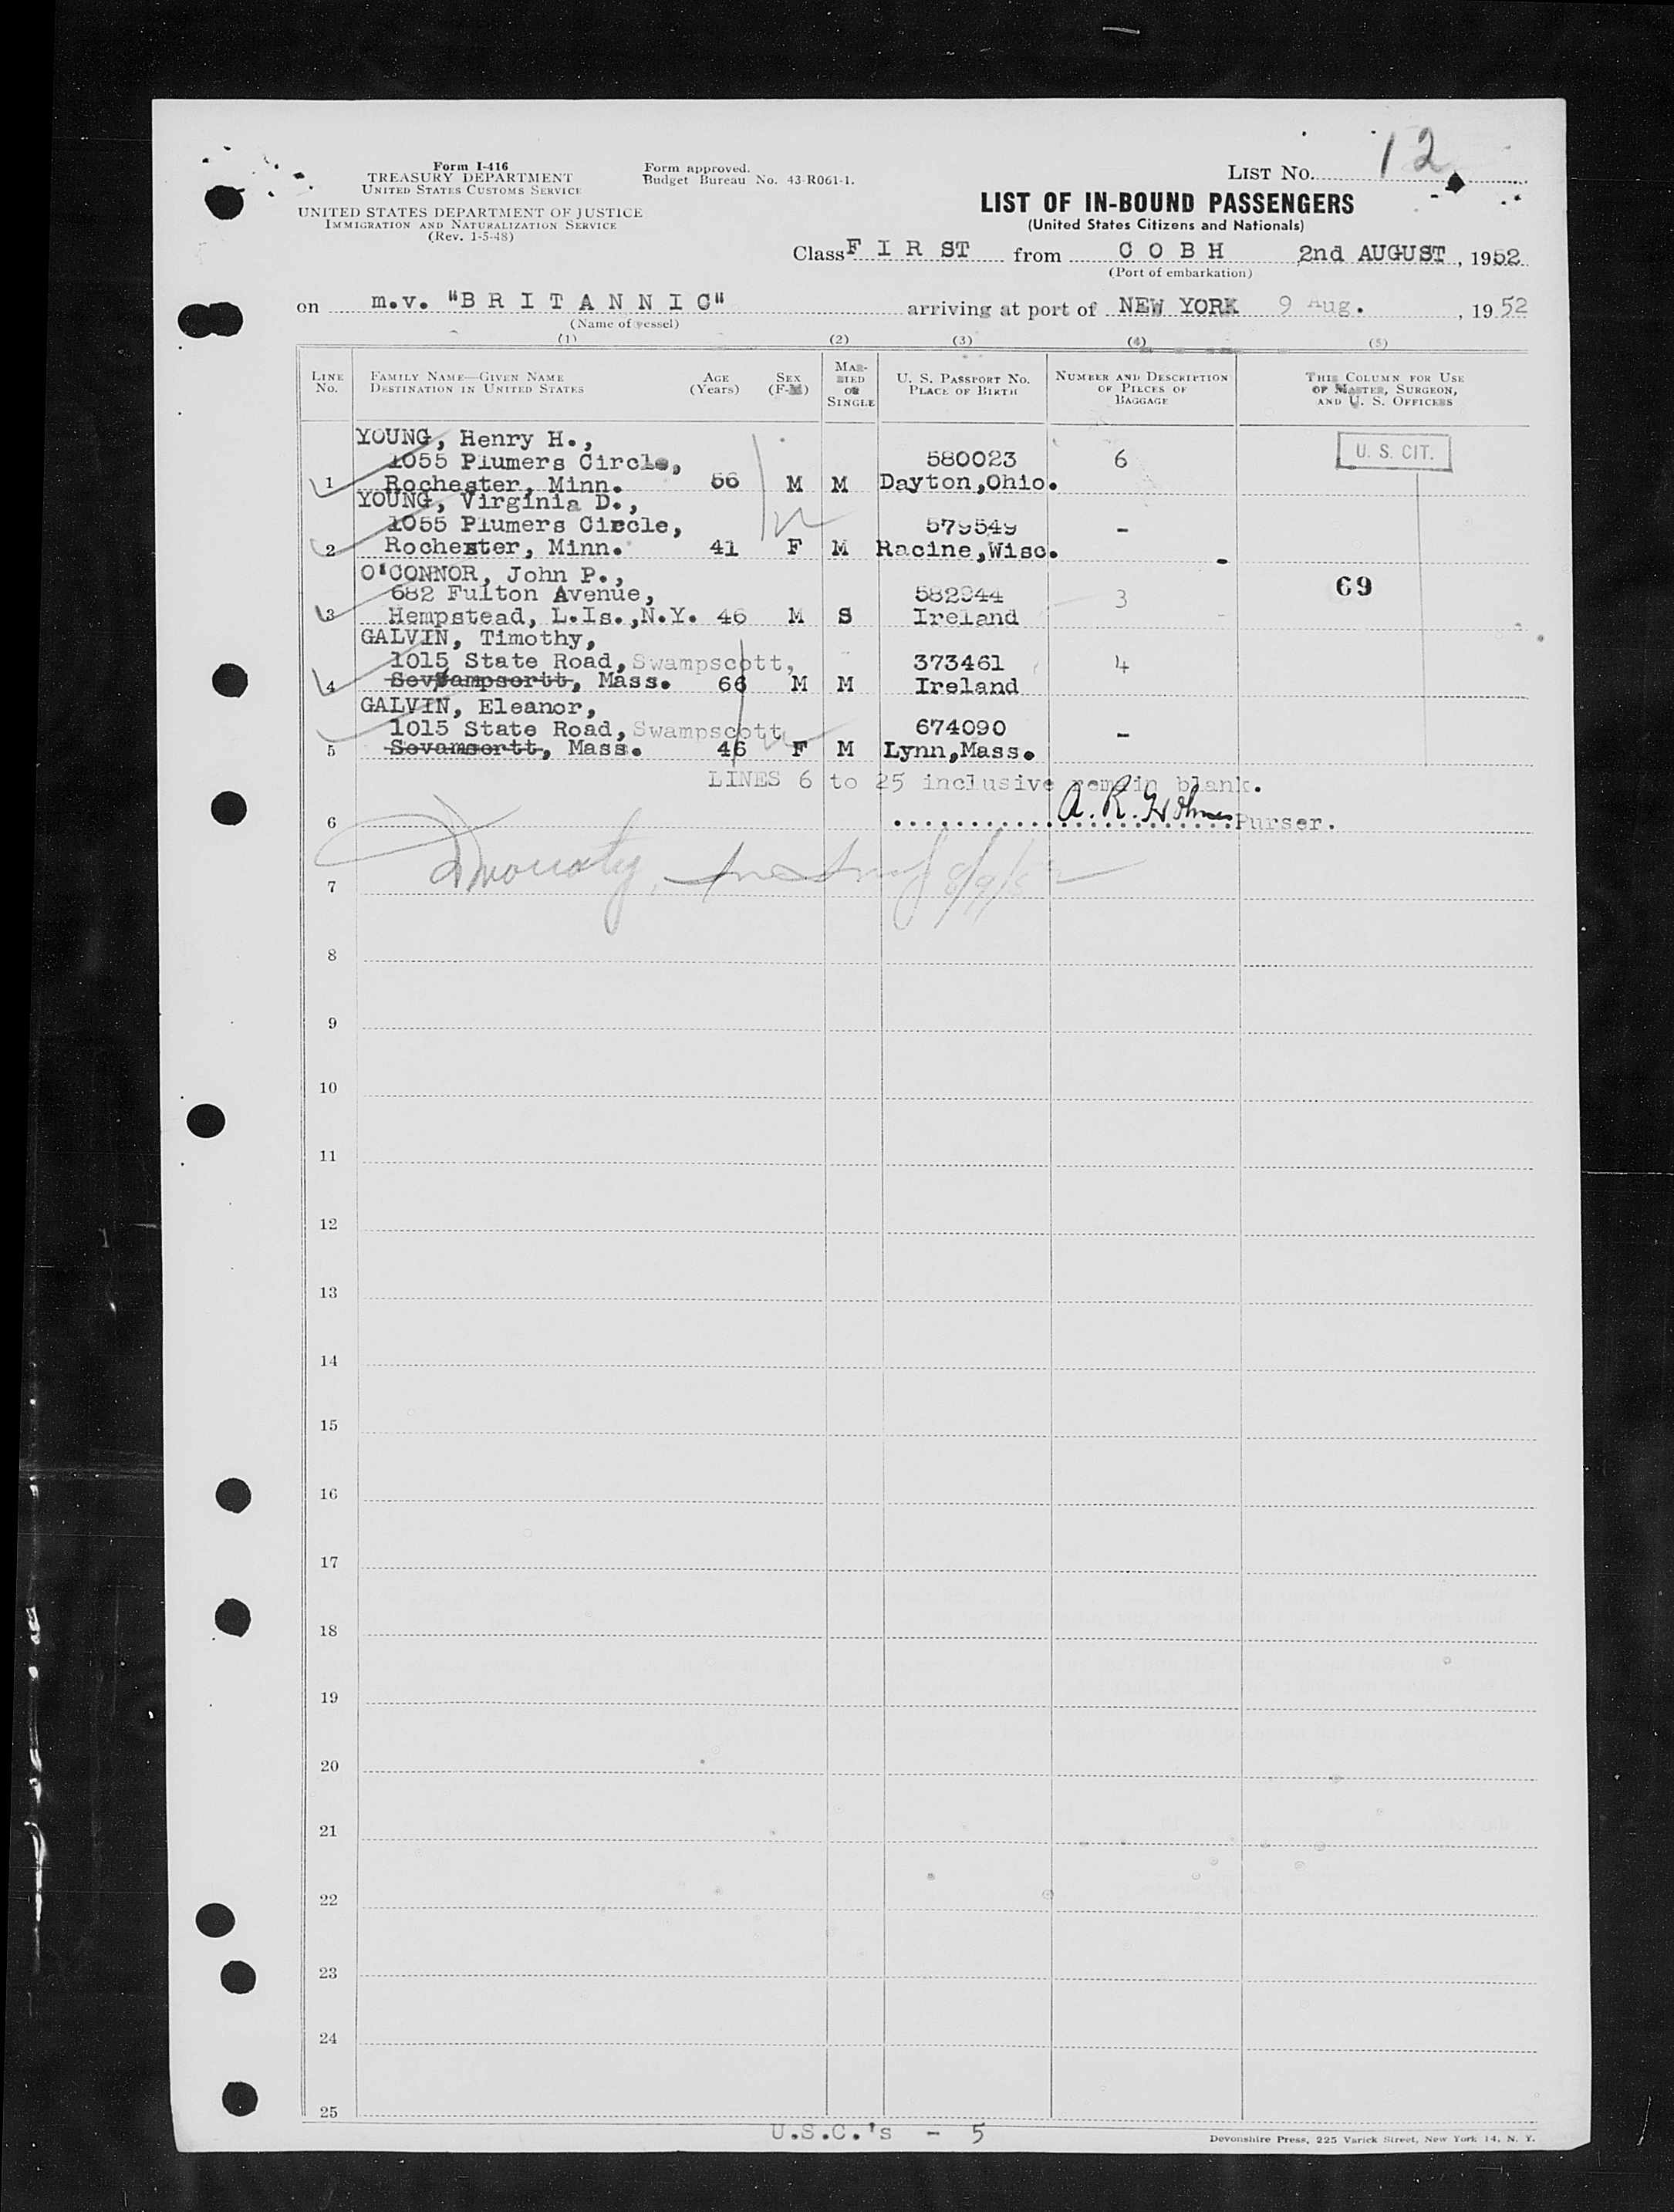 LIST NO. 12
Form I-416
TREASURY DEPARTMENT
UNITED STATES CUSTOMS SERVICE
Form approved.
Budget Bureau No. 43-R061-1.
UNITED STATES DEPARTMENT OF JUSTICE
IMMIGRATION AND NATURALIZATION SERVICE
(Rev. 1-5-48)
LIST OF IN-BOUND PASSENGERS
(United States Citizens and Nationals)
Class F I R ST from C O B H 2nd AUGUST, 1952
(Port of embarkation)
on m.v. "B R I T A N N I C" arriving at port of NEW YORK 9 Aug. , 1952
(Name of vessel)
(1) (2) (3) (4) (5)
LINE NO.
FAMILY NAME—GIVEN NAME
DESTINATION IN UNITED STATES
AGE
(Years)
SEX
(F-M)
MAR-
RIED
OR
SINGLE
U. S. PASSPORT NO.
PLACE OF BIRTH
NUMBER AND DESCRIPTION
OF PIECES OF
BAGGAGE
THIS COLUMN FOR USE
OF MASTER, SURGEON,
AND U. S. OFFICERS
YOUNG, Henry H.,
1055 Plumers Circle, 580023 6 U. S. CIT.
1 Rochester, Minn. 56 M M Dayton,Ohio.
YOUNG, Virginia D.,
1055 Plumers Circle, 579549 -
2 Rochester, Minn. 41 F M Racine,Wisc.
O'CONNOR, John P.,
682 Fulton Avenue, 3 69
3 Hempstead, L.Is.,N.Y. 46 M S Ireland
GALVIN, Timothy,
1015 State Road, Swampscott, 373461 4
4 Mass. 66 M M Ireland
GALVIN, Eleanor,
1015 State Road, Swampscott 674090 -
5 Sovamsortt, Mass. 46 F M Lynn,Mass.
LINES 6 to 25 inclusive remain blank.
6 A. R. Holmes Purser.
7 8/9/52
8
9
10
11
12
13
14
15
16
17
18
19
20
21
22
23
24
25
U.S.C.'s - 5
Devonshire Press, 225 Varick Street, New York 14, N. Y.